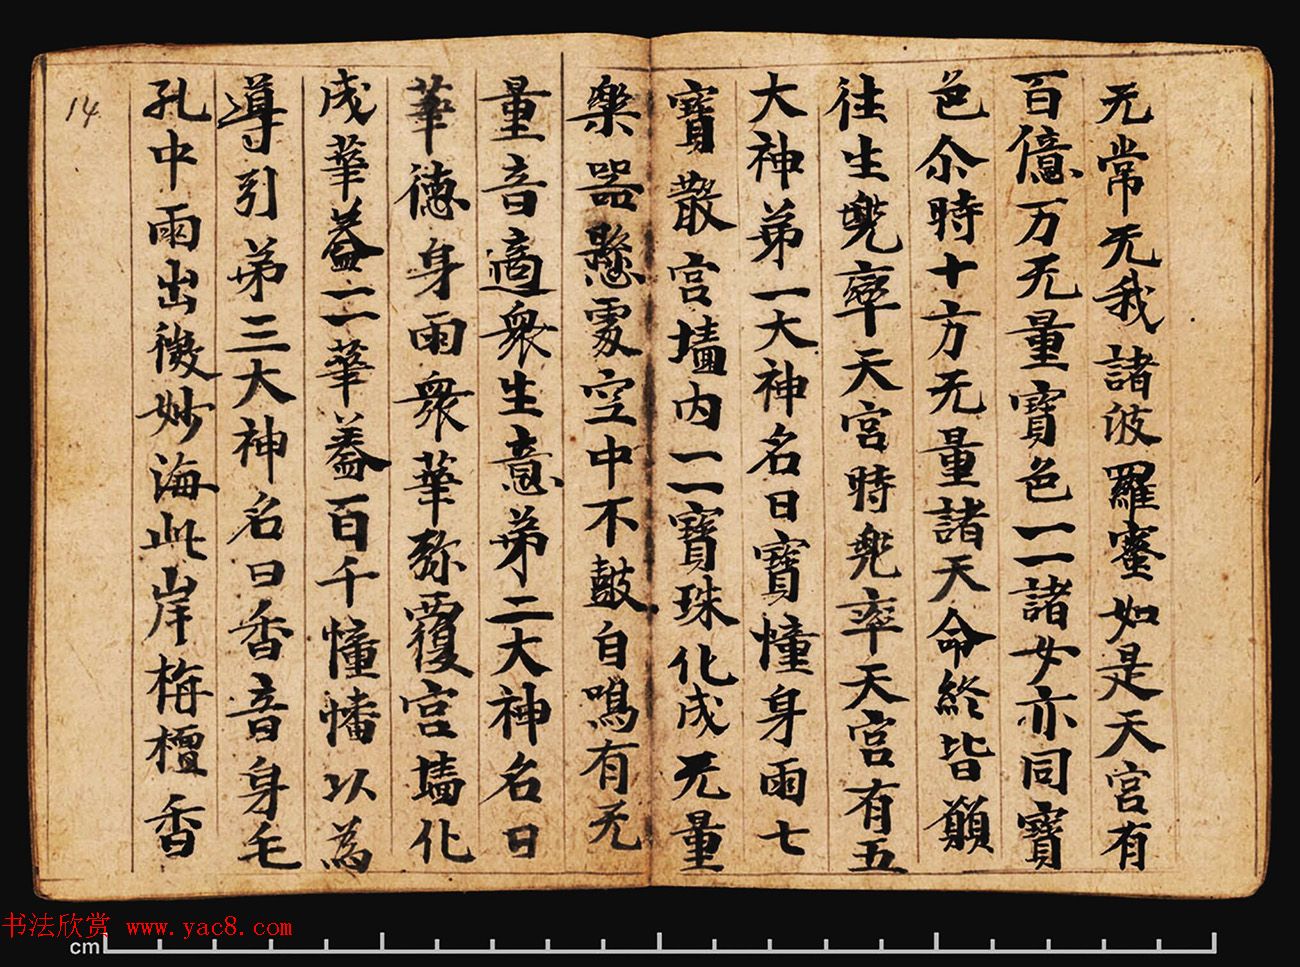 无常无我諸波羅蜜如是天宮有
百億万无量寶色一一諸女亦同寶
色尒時十方无量諸天命終皆願
往生兜率天宮時兜率天宮有五
大神第一大神名曰寶幢身雨七
寶散宮墻內一一寶珠化成无量
樂器懸處空中不鼓自鳴有无
量音適衆生意第二大神名曰
華德身雨衆華弥覆宮墻化
成華蓋一一華蓋百千幢幡以為
導引第三大神名曰香音身毛
孔中雨出微妙海此岸栴檀香
14
书法欣赏 www.yac8.com
cm